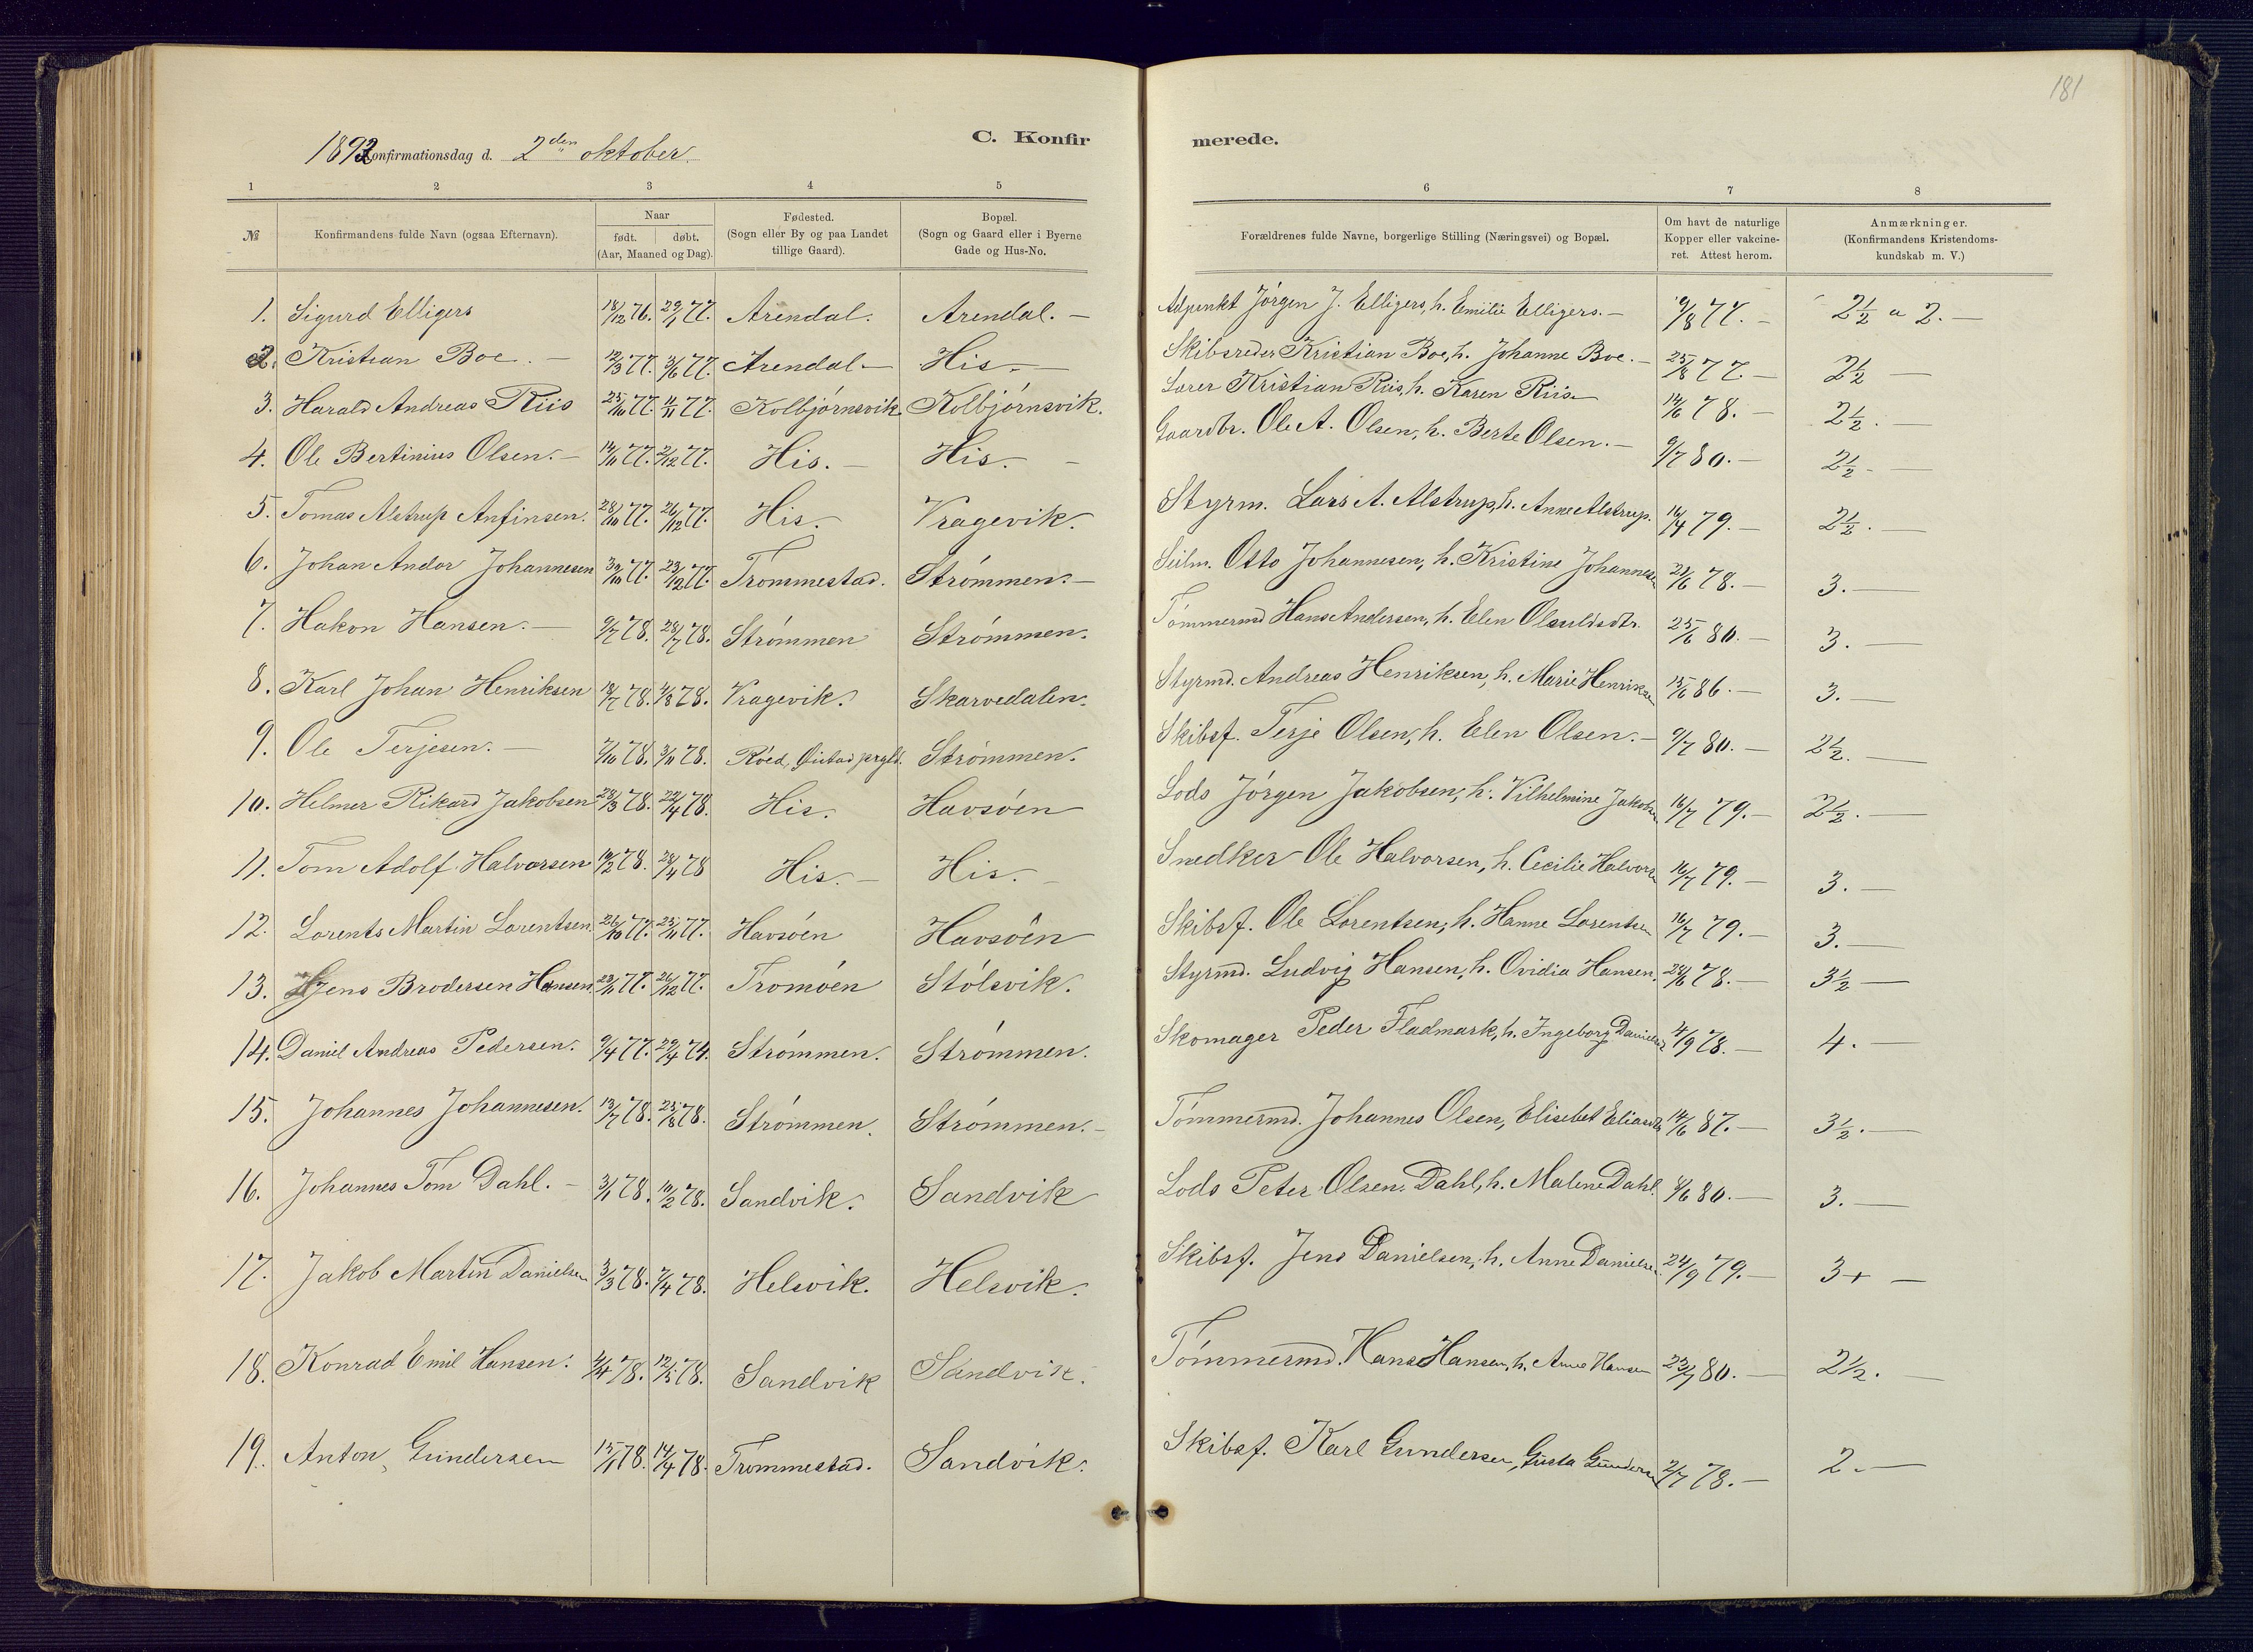 181
C. Konfir merede.
1892 Konfirmationsdag d. 2den oktober.
1 2 3 4 5 6 7 8
№ Konfirmandens fulde Navn (ogsaa Efternavn). Naar født. døbt. (Aar, Maaned og Dag). Fødested. (Sogn eller By og paa Landet tillige Gaard). Bopæl. (Sogn og Gaard eller i Byerne Gade og Hus-No. Forældrenes fulde Navne, borgerlige Stilling (Næringsvei) og Bopæl. Om havt de naturlige Kopper eller vakcineret. Attest herom. Anmærkninger. (Konfirmandens Kristendomskundskab m. V.)
1. Sigurd Elligers 18/12 76. 29/1 77. Arendal. Arendal. — Adjunkt Jörgen J. Elligers, h. Emilie Elligers. — 9/8 77. — 2½ a 2. —
2. Kristian Boe. — 12/3 77. 3/6 77. Arendal — His. — Skibsreder Kristian Boe, h. Johanne Boe. — 25/8 77. — 2½ —
3. Harald Andreas Riis 25/10 77. 4/11 77. Kolbjörnsvik. Kolbjörnsvik. Kristian Riis, h. Karen Riis — 14/6 78. — 2½. —
4. Ole Bertinius Olsen. — 14/11 77. 2/12 77. His. — His. — Gaardbr. Ole A. Olsen, h. Berte Olsen. — 9/7 80. — 2½. —
5. Tomas Alstrup Anfinsen. 28/10 77. 26/12 77. His. Vragevik. Styrm. Lars A. Alstrup, h. Anne Alstrup. 16/4 79. — 2½. —
6. Johan Andor Johannesen 30/10 77. 23/12 77. Trommestad. Strömmen. — Seilm. Otto Johannesen, h. Kristine Johannesen 21/6 78. — 3. —
7. Hakon Hansen. — 9/7 78. 28/7 78. Strömmen Strömmen. Tömmermd Hans Andersen, h. Elen 25/6 80. — 3. —
8. Karl Johan Henriksen 18/7 78. 4/8 78. Vragevik. Skarvedalen. Styrmd. Andreas Henriksen, h. Marie Henriksen 15/6 86. — 3. —
9. Ole Terjesen. — 7/10 78. 3/11 78. Röed, Öiestad prgld. Strömmen. Skibsf. Terje Olsen, h. Elen Olsen. — 9/7 80. — 2½. —
10. Helmer Rikard Jakobsen 28/3 78. 22/4 78. His. Havsöen Lods Jörgen Jakobsen, h. Vilhelmine Jakobsen 16/7 79. — 2½. —
11. Tom Adolf Halvorsen 10/2 78. 28/4 78 His. — His. — Snedker Ole Halvorsen, h. Cecilie Halvorsen 16/7 79. — 3. —
12. Lorents Martin Lorentsen. 26/10 77. 25/11 77. Havsöen Havsöen Skibsf. Ole Lorentsen, h. Hanne Lorentsen 16/7 79. — 3. —
13. Jens Brodersen Hansen. 23/11 77. 26/12 77. Tromöen Stölsvik. Styrmd. Ludvig Hansen, h. Ovidia Hansen. 28/6 78. — 3½ —
14. Daniel Andreas Pedersen. 9/4 77. 29/4 77. Strömmen. Strömmen. Skomager Peder Fladmark, h. Ingeborg Danielsd. 4/9 78. — 4. —
15. Johannes Johannesen. 13/7 78. 25/8 78. Strömmen. Strömmen. — Tömmermd. Johannes Olsen, Elisebet Eliasdtr. 14/6 87. — 3½. —
16. Johannes Tom Dahl. — 3/1 78. 10/2 78. Sandvik. Sandvik Lods Peter Olsen Dahl, h. Malene Dahl. 4/6 80. — 3. —
17. Jakob Martin Danielsen 3/3 78. 7/4 78. Helsvik. Helsvik. Skibsf. Jens Danielsen, h. Anne Danielsen. 24/9 79. — 3+ —
18. Konrad Emil Hansen. 4/4 78. 12/5 78. Sandvik Sandvik. Tömmermd. Hans Hansen, h. Anne Hansen 23/7 80. — 2½. —
19. Anton Gundersen 15/1 78. 14/4 78. Trommestad. Sandvik. Skibsf. Karl Gundersen, Gusta Gundersen 2/7 78. — 2. —